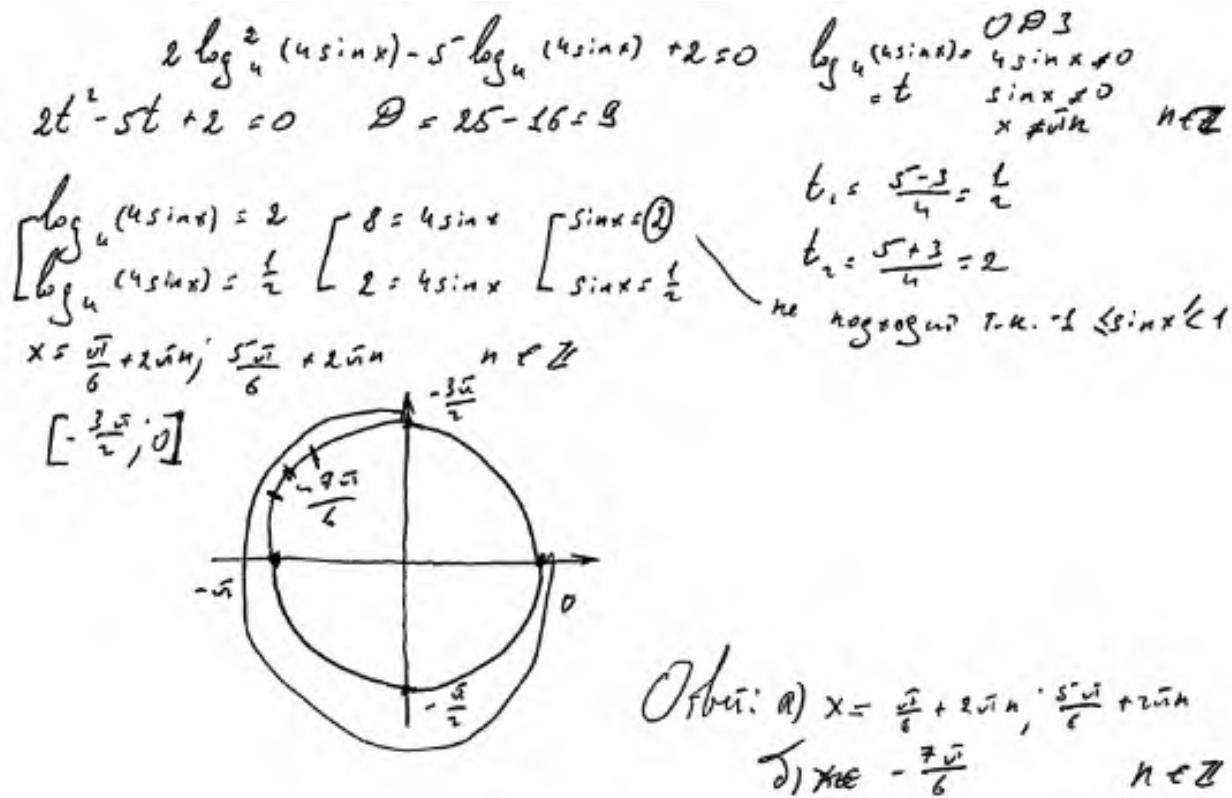 2 log₄² (4sinx) - 5 log₄ (4sinx) + 2 = 0
log₄ (4sinx) = t
ОДЗ
4sinx ≠ 0
sinx ≠ 0
x ≠ πn n ∈ Z
2t² - 5t + 2 = 0 D = 25 - 16 = 9
t₁ = (5-3)/4 = 1/2
t₂ = (5+3)/4 = 2
[ log₄ (4sinx) = 2 [ 8 = 4sinx [ sinx = 2
log₄ (4sinx) = 1/2 2 = 4sinx sinx = 1/2
не подходит т.к. -1 ≤ sinx < 1
x = π/6 + 2πn; 5π/6 + 2πn n ∈ Z
[-3π/2; 0]
-3π/2
-7π/6
-π
0
-π/2
Ответ: а) x = π/6 + 2πn; 5π/6 + 2πn
б) -7π/6 n ∈ Z